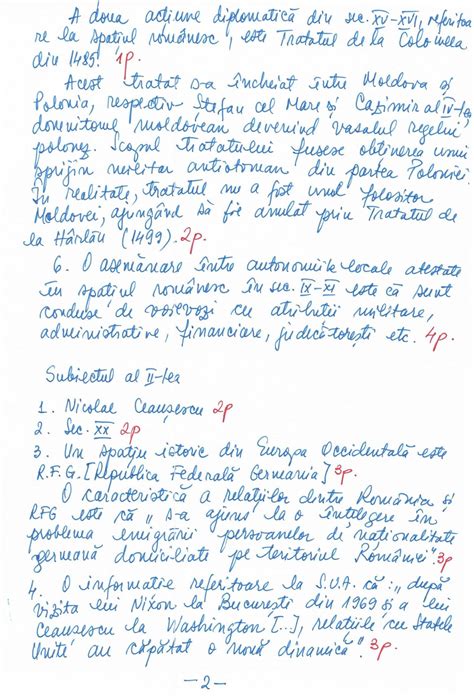 A doua acțiune diplomatică din sec. XV-XVI, referitoa
re la spațiul românesc, este Tratatul de la Colomeea
din 1485. 1p.
Acest tratat s-a încheiat între Moldova și
Polonia, respectiv Ștefan cel Mare și Cazimir al IV-lea,
domnitorul moldovean devenind vasalul regelui
polonez. Scopul tratatului fusese obținerea unui
sprijin militar antiotoman din partea Poloniei.
În realitate, tratatul nu a fost unul folositor
Moldovei, ajungând să fie anulat prin Tratatul de
la Hârlău (1499). 2p.
6. O asemănare între autonomiile locale atestate
în spațiul românesc în sec. IX-XI este că sunt
conduse de voievozi cu atribuții militare,
administrative, financiare, judecătorești etc. 4p.
Subiectul al II-lea
1. Nicolae Ceaușescu 2p
2. Sec. XX 2p
3. Un spațiu istoric din Europa Occidentală este
R.F.G. [Republica Federală Germania] 3p.
O caracteristică a relațiilor dintre România și
RFG este că „s-a ajuns la o înțelegere în
problema emigrării persoanelor de naționalitate
germană domiciliate pe teritoriul României”. 3p
4. O informație referitoare la S.U.A. că: „după
vizita lui Nixon la București din 1969 și a lui
Ceaușescu la Washington [..], relațiile cu Statele
Unite au căpătat o nouă dinamică”. 3p.
- 2 -